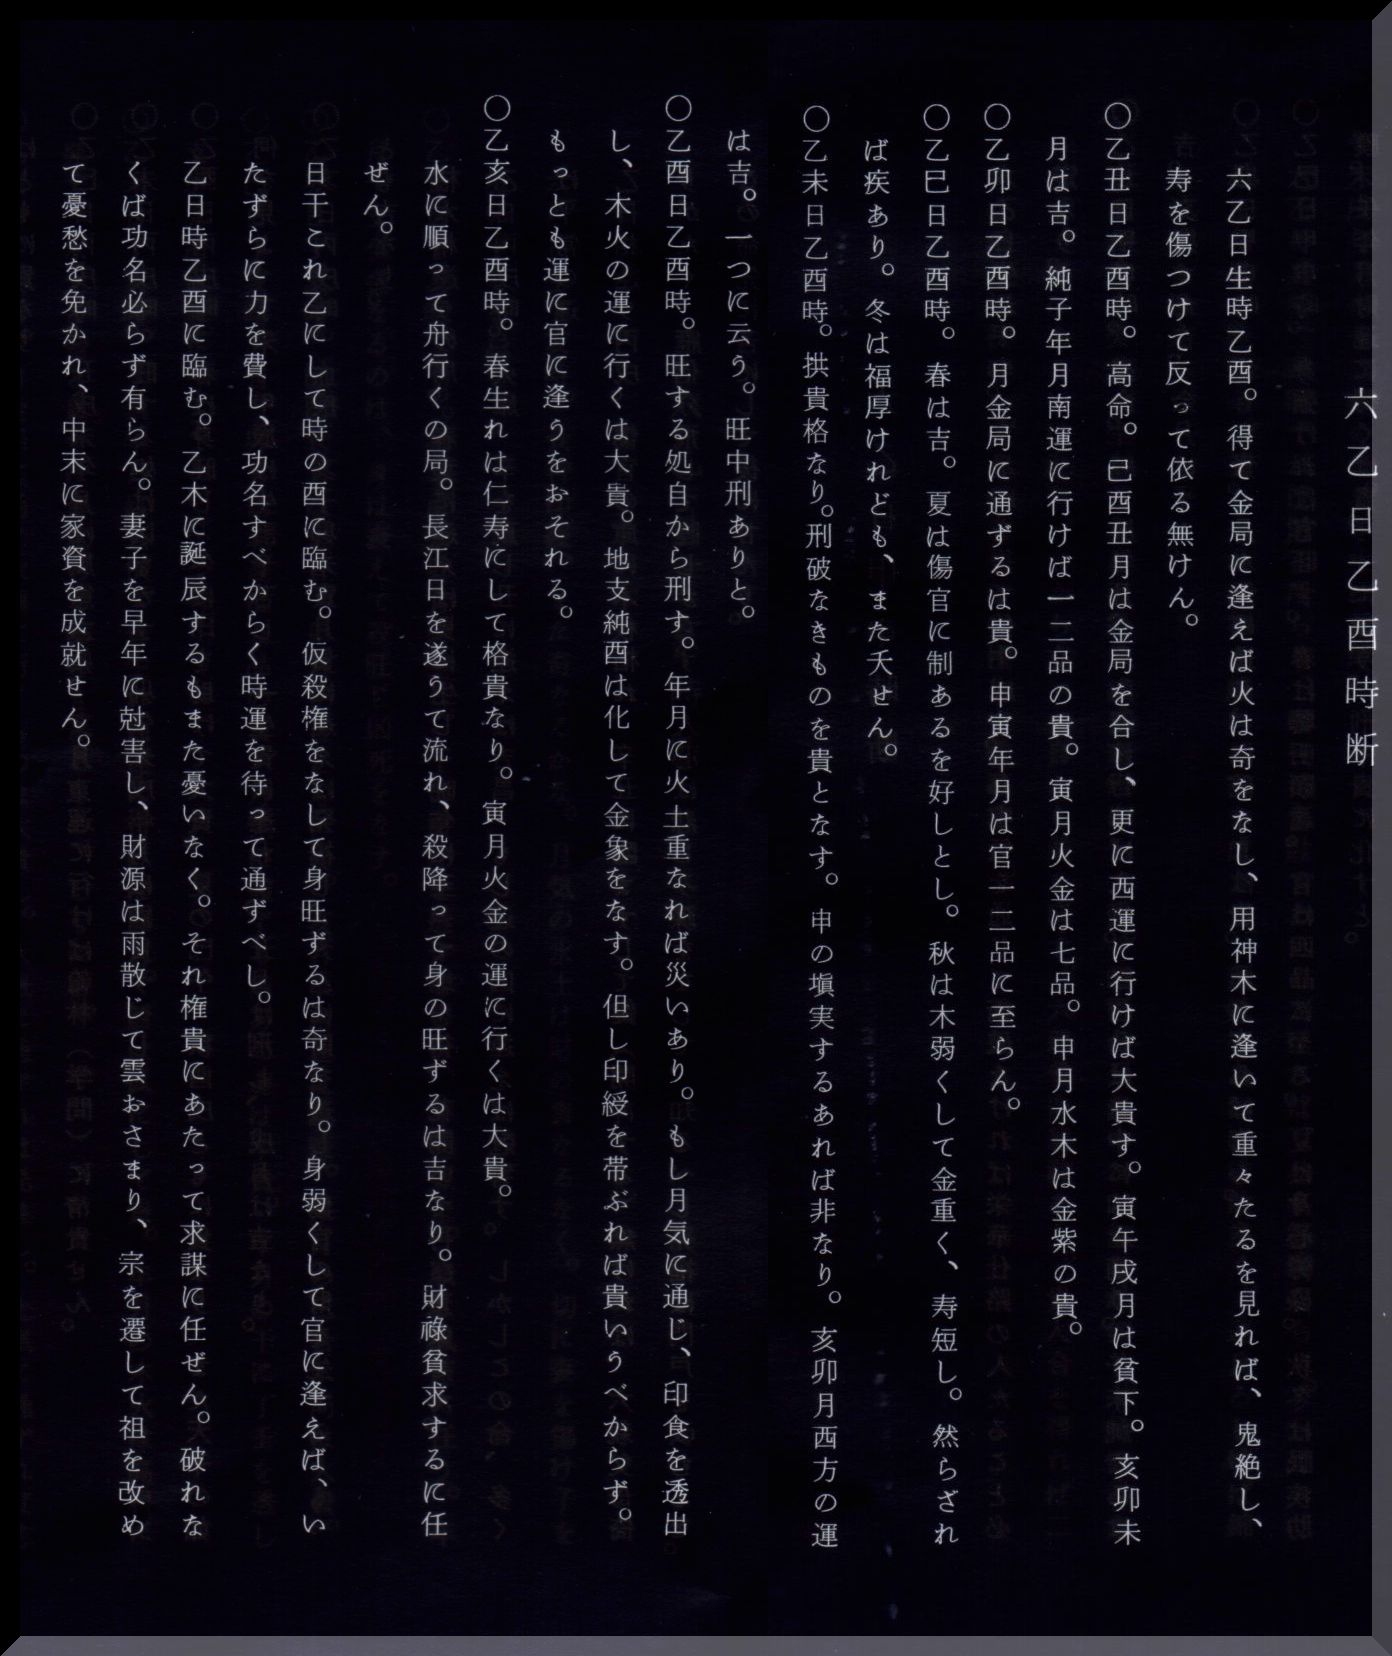 六乙日乙酉時断
六乙日生時乙酉。得て金局に逢えば火は奇をなし、用神木に逢いて重々たるを見れば、鬼絶し、
寿を傷つけて反って依る無けん。
〇乙丑日乙酉時。高命。巳酉丑月は金局を合し、更に西運に行けば大貴す。寅午戌月は貧下。亥卯未
月は吉。純子年月南運に行けば一二品の貴。寅月火金は七品。申月水木は金紫の貴。
〇乙卯日乙酉時。月金局に通ずるは貴。申寅年月は官一二品に至らん。
〇乙巳日乙酉時。春は吉。夏は傷官に制あるを好しとし。秋は木弱くして金重く、寿短し。然らざれ
ば疾あり。冬は福厚けれども、また夭せん。
〇乙未日乙酉時。拱貴格なり。刑破なきものを貴となす。申の塡実するあれば非なり。亥卯月西方の運
は吉。一つに云う。旺中刑ありと。
〇乙酉日乙酉時。旺する処自から刑す。年月に火土重なれば災いあり。もし月気に通じ、印食を透出
し、木火の運に行くは大貴。地支純酉は化して金象をなす。但し印綬を帯ぶれば貴いうべからず。
もっとも運に官に逢うをおそれる。
〇乙亥日乙酉時。春生れは仁寿にして格貴なり。寅月火金の運に行くは大貴。
水に順って舟行くの局。長江日を遂うて流れ、殺降って身の旺ずるは吉なり。財祿貧求するに任
ぜん。
日干これ乙にして時の酉に臨む。仮殺権をなして身旺ずるは奇なり。身弱くして官に逢えば、い
たずらに力を費し、功名すべからく時運を待って通ずべし。
乙日時乙酉に臨む。乙木に誕辰するもまた憂いなく。それ権貴にあたって求謀に任ぜん。破れな
くば功名必らず有らん。妻子を早年に尅害し、財源は雨散じて雲おさまり、宗を遷して祖を改め
て憂愁を免かれ、中末に家資を成就せん。